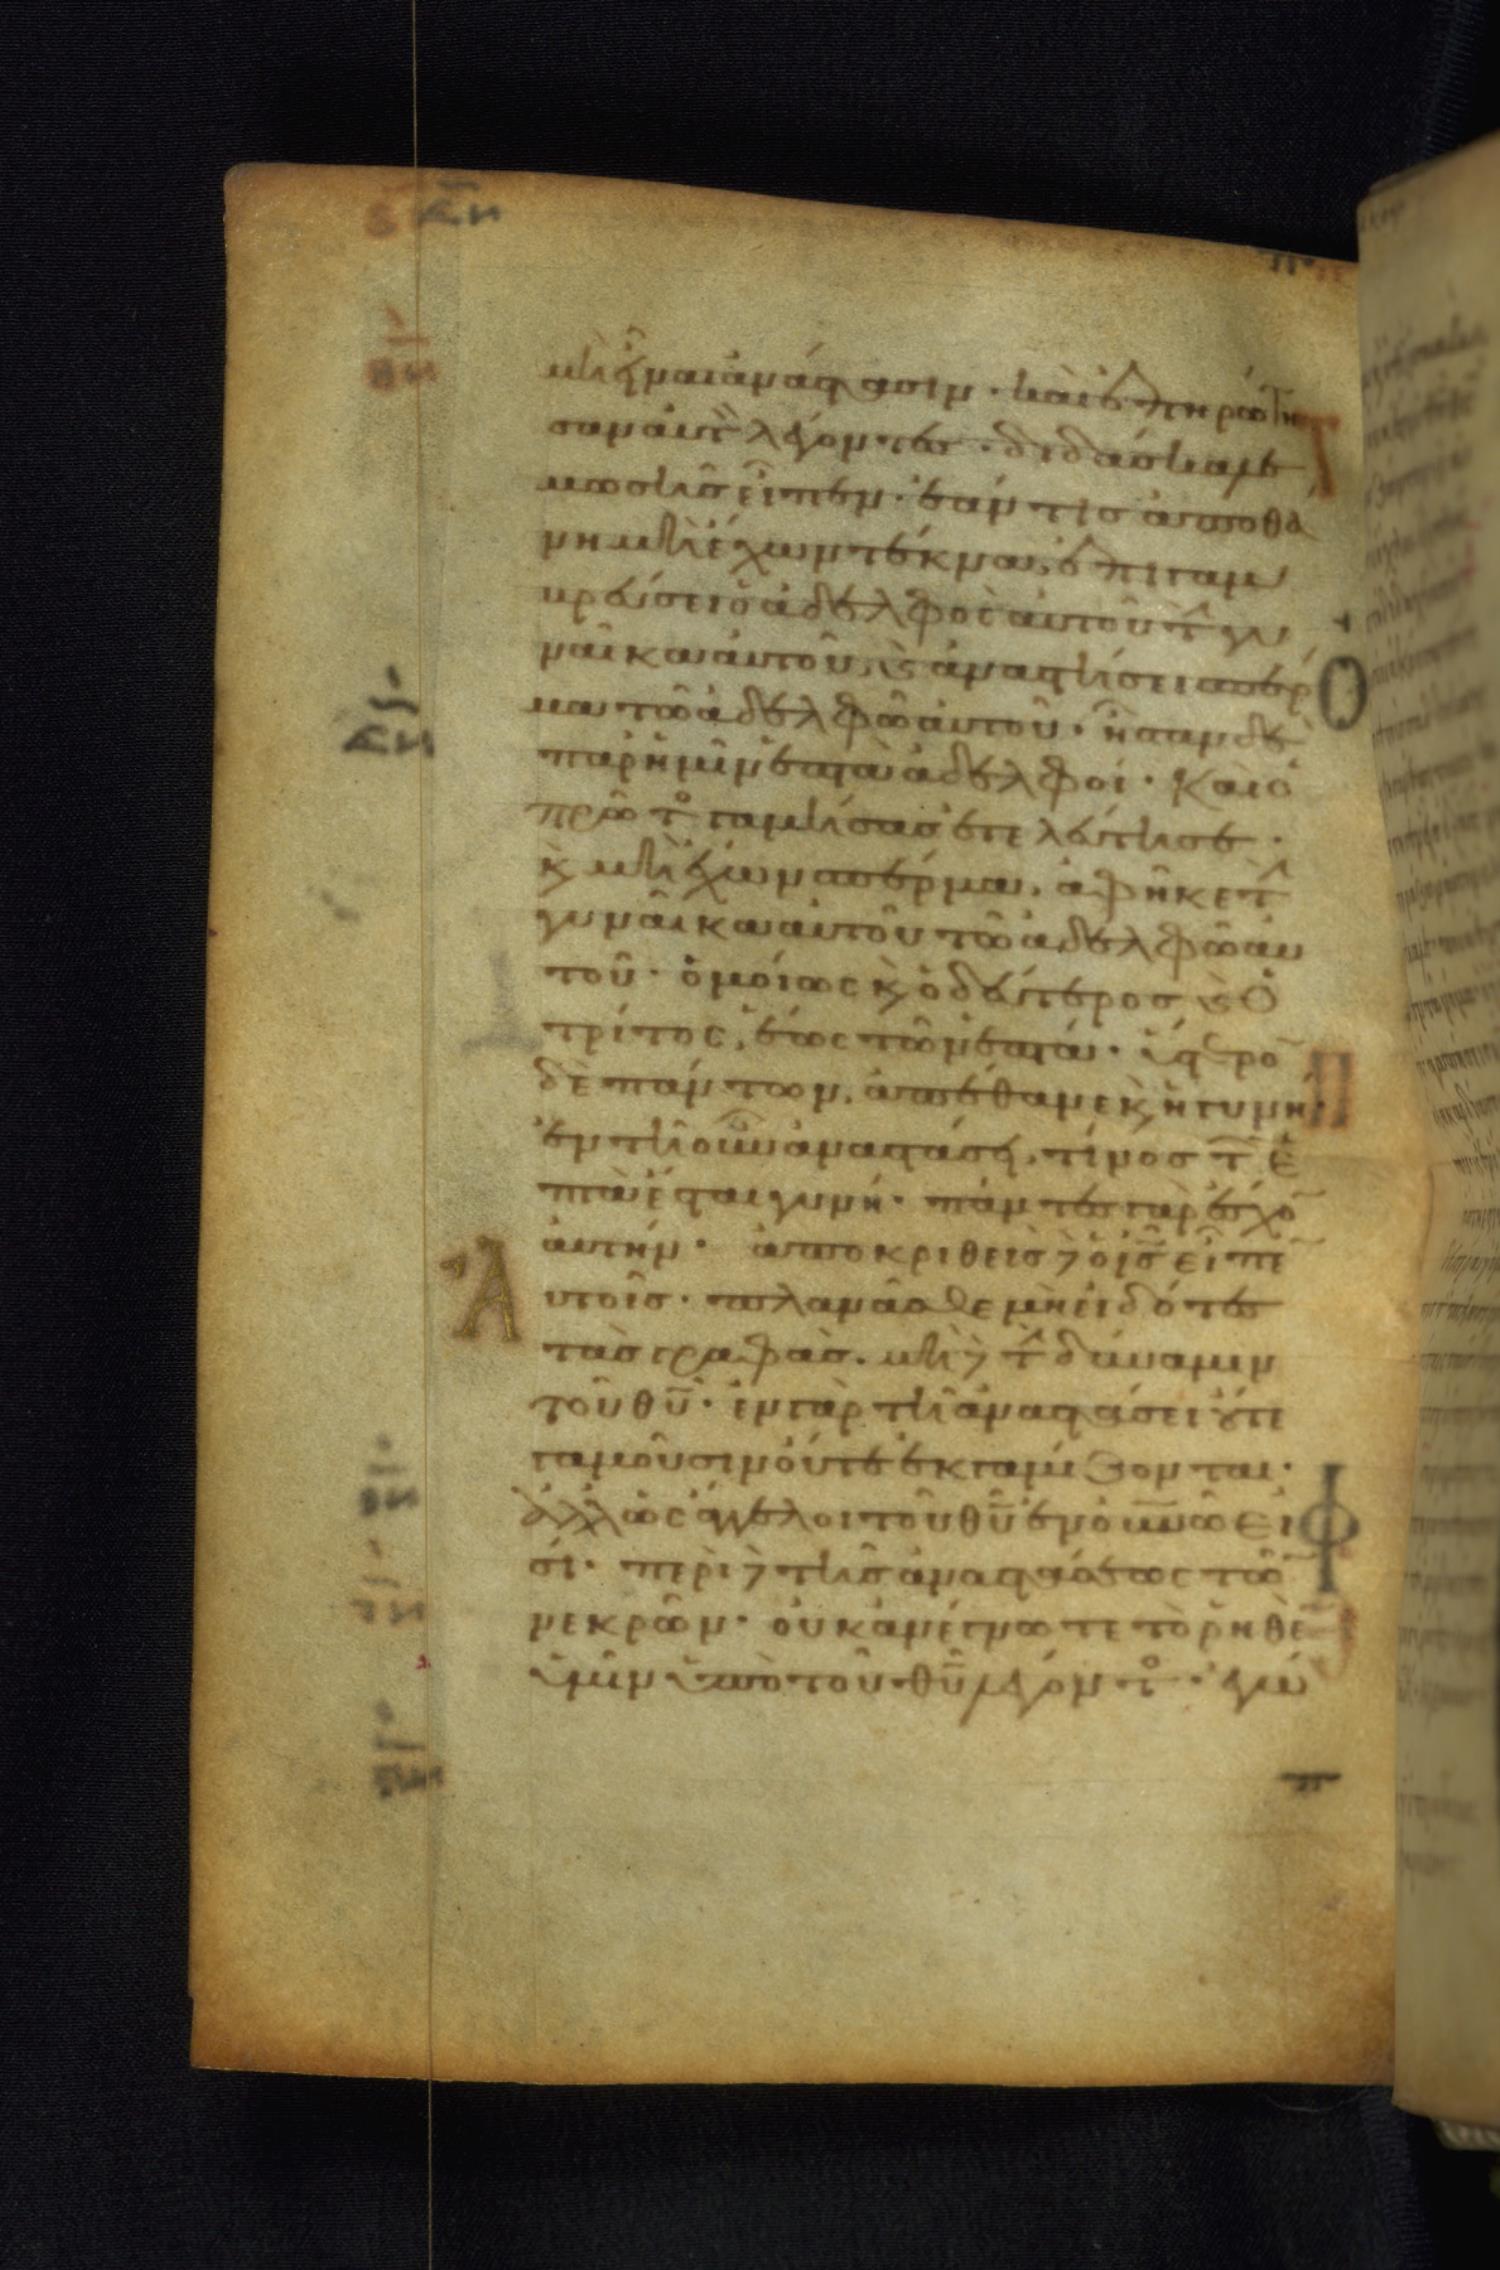 μὴ εἶναι ἀνάστασιν· καὶ ἐπηρώτη
σαν αὐτ λέγοντες· διδάσκαλε
μωσῆς εἶπεν· ἐάν τις ἀποθά
νη μὴ ἔχων τέκνα, ἐπιγαμ
βρεύσει ὁ ἀδελφὸς αὐτοῦ τ̂ γυ
ναῖκα αὐτοῦ, κ ἀναστήσει σπέρ
μα τῶ ἀδελφῶ αὐτοῦ· ἦσαν δὲ
παρ' ἡμῖν ἑπτὰ ἀδελφοί· καὶ ὁ
πρῶτο γαμήσας ἐτελεύτησε·
κ μὴ ἔχων σπέρμα, ἀφῆκε τ̂
γυναῖκα αὐτοῦ τῶ ἀδελφῶ αὐ
τοῦ· ὁμοίως κ ὁ δεύτερος κ ὁ
τρίτος, ἕως τῶν ἑπτά· ὕστερο
δὲ πάντων, ἀπέθανε κ ἡ γυνή·
ἐν τῆ οὖν ἀναστάσει, τίνος τ ἑ
πτὰ ἔσται γυνή· πάντες γὰρ ἔσχο
αὐτήν· ἀποκριθεὶς δὲ ὁ ις εἶπε
Ἀυτοῖς· πλανᾶσθε μὴ εἰδότες
τὰς γραφὰς. μὴ δὲ τ̂ δύναμιν
τοῦ θυ· ἐν γὰρ τῆ ἀναστάσει οὔτε
γαμοῦσιν οὔτε ἐκγαμίζονται·
ἀλλ' ὡς ἄγγελοι τοῦ θυ ἐν οὐνῶ εἰ
σί· περὶ δὲ τῆς ἀναστάσεως τῶ
νεκρῶν· οὐκ ἀνέγνωτε τὸ ῥηθὲ
ὑμῖν ὑπὸ τοῦ θυ λέγοντο· ἐγώ